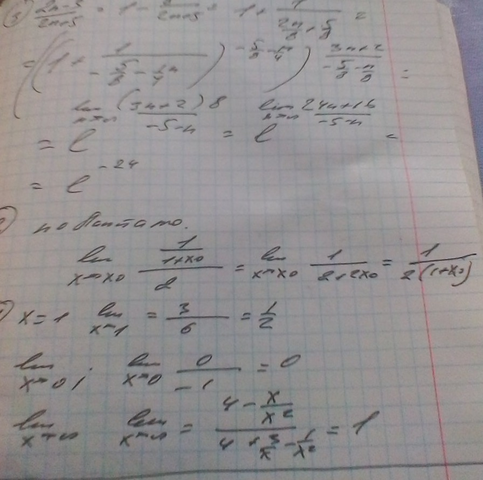 3) (2n-3)/(2n+5) = 1 - 8/(2n+5) = 1 + 1/(2n/8 + 5/8) =
= ((1 + 1/(-5/8 - 1/4 n))^(-5/8 - n/4))^((3n+2)/(-5/8 - n/8)) =
= l^(lim x→∞ (3n+2)8/(-5-n)) = l^(lim x→∞ (24n+16)/(-5-n)) =
= l^(-24)
по Лопитато.
lim x→x0 (1/(1+x0))/2 = lim x→x0 1/(2+2x0) = 1/(2(1+x0))
x=1 lim x→1 = 3/6 = 1/2
lim x→0; lim x→0 0/(-1) = 0
lim x→∞ lim x→∞ = (4 - x/x²)/(4 + 3/x - 1/x²) = 1